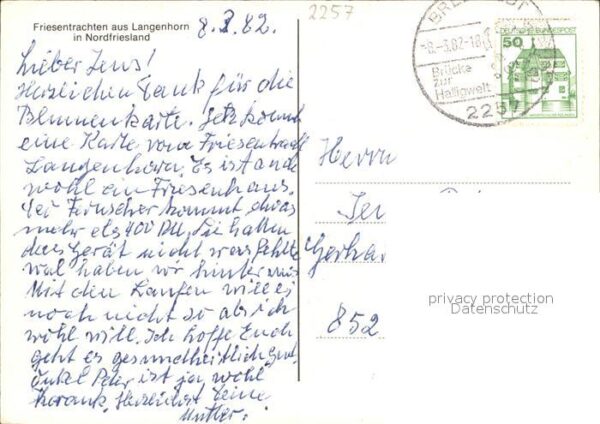 Friesentrachten aus Langenhorn
in Nordfriesland
8.3.82.
2257
Lieber Jens!
Herzlichen Dank für die
Blumenkarte. Jetz kommt
eine Karte vom Friesentracht
Langenhorn. Es ist auch
wohl ein Friesenhaus.
Der Fernseher kommt etwas
mehr als 400 DM, Sie hatten
das Gerät nicht was fehlte
wal haben wir hinter uns
Mit den Laufen will es
noch nicht so als ich
wohl will. Ich hoffe Euch
geht es gesundheitlich gut,
Onkel Peter ist ja wohl
krank. Herzlichst Deine
Mutter.
BRED
-8.-3.82-18
Brücke
zur
Halligwelt
2257
DEUTSCHE BUNDESPOST
50
Herrn
Jen
Gerha
852
privacy protection
Datenschutz